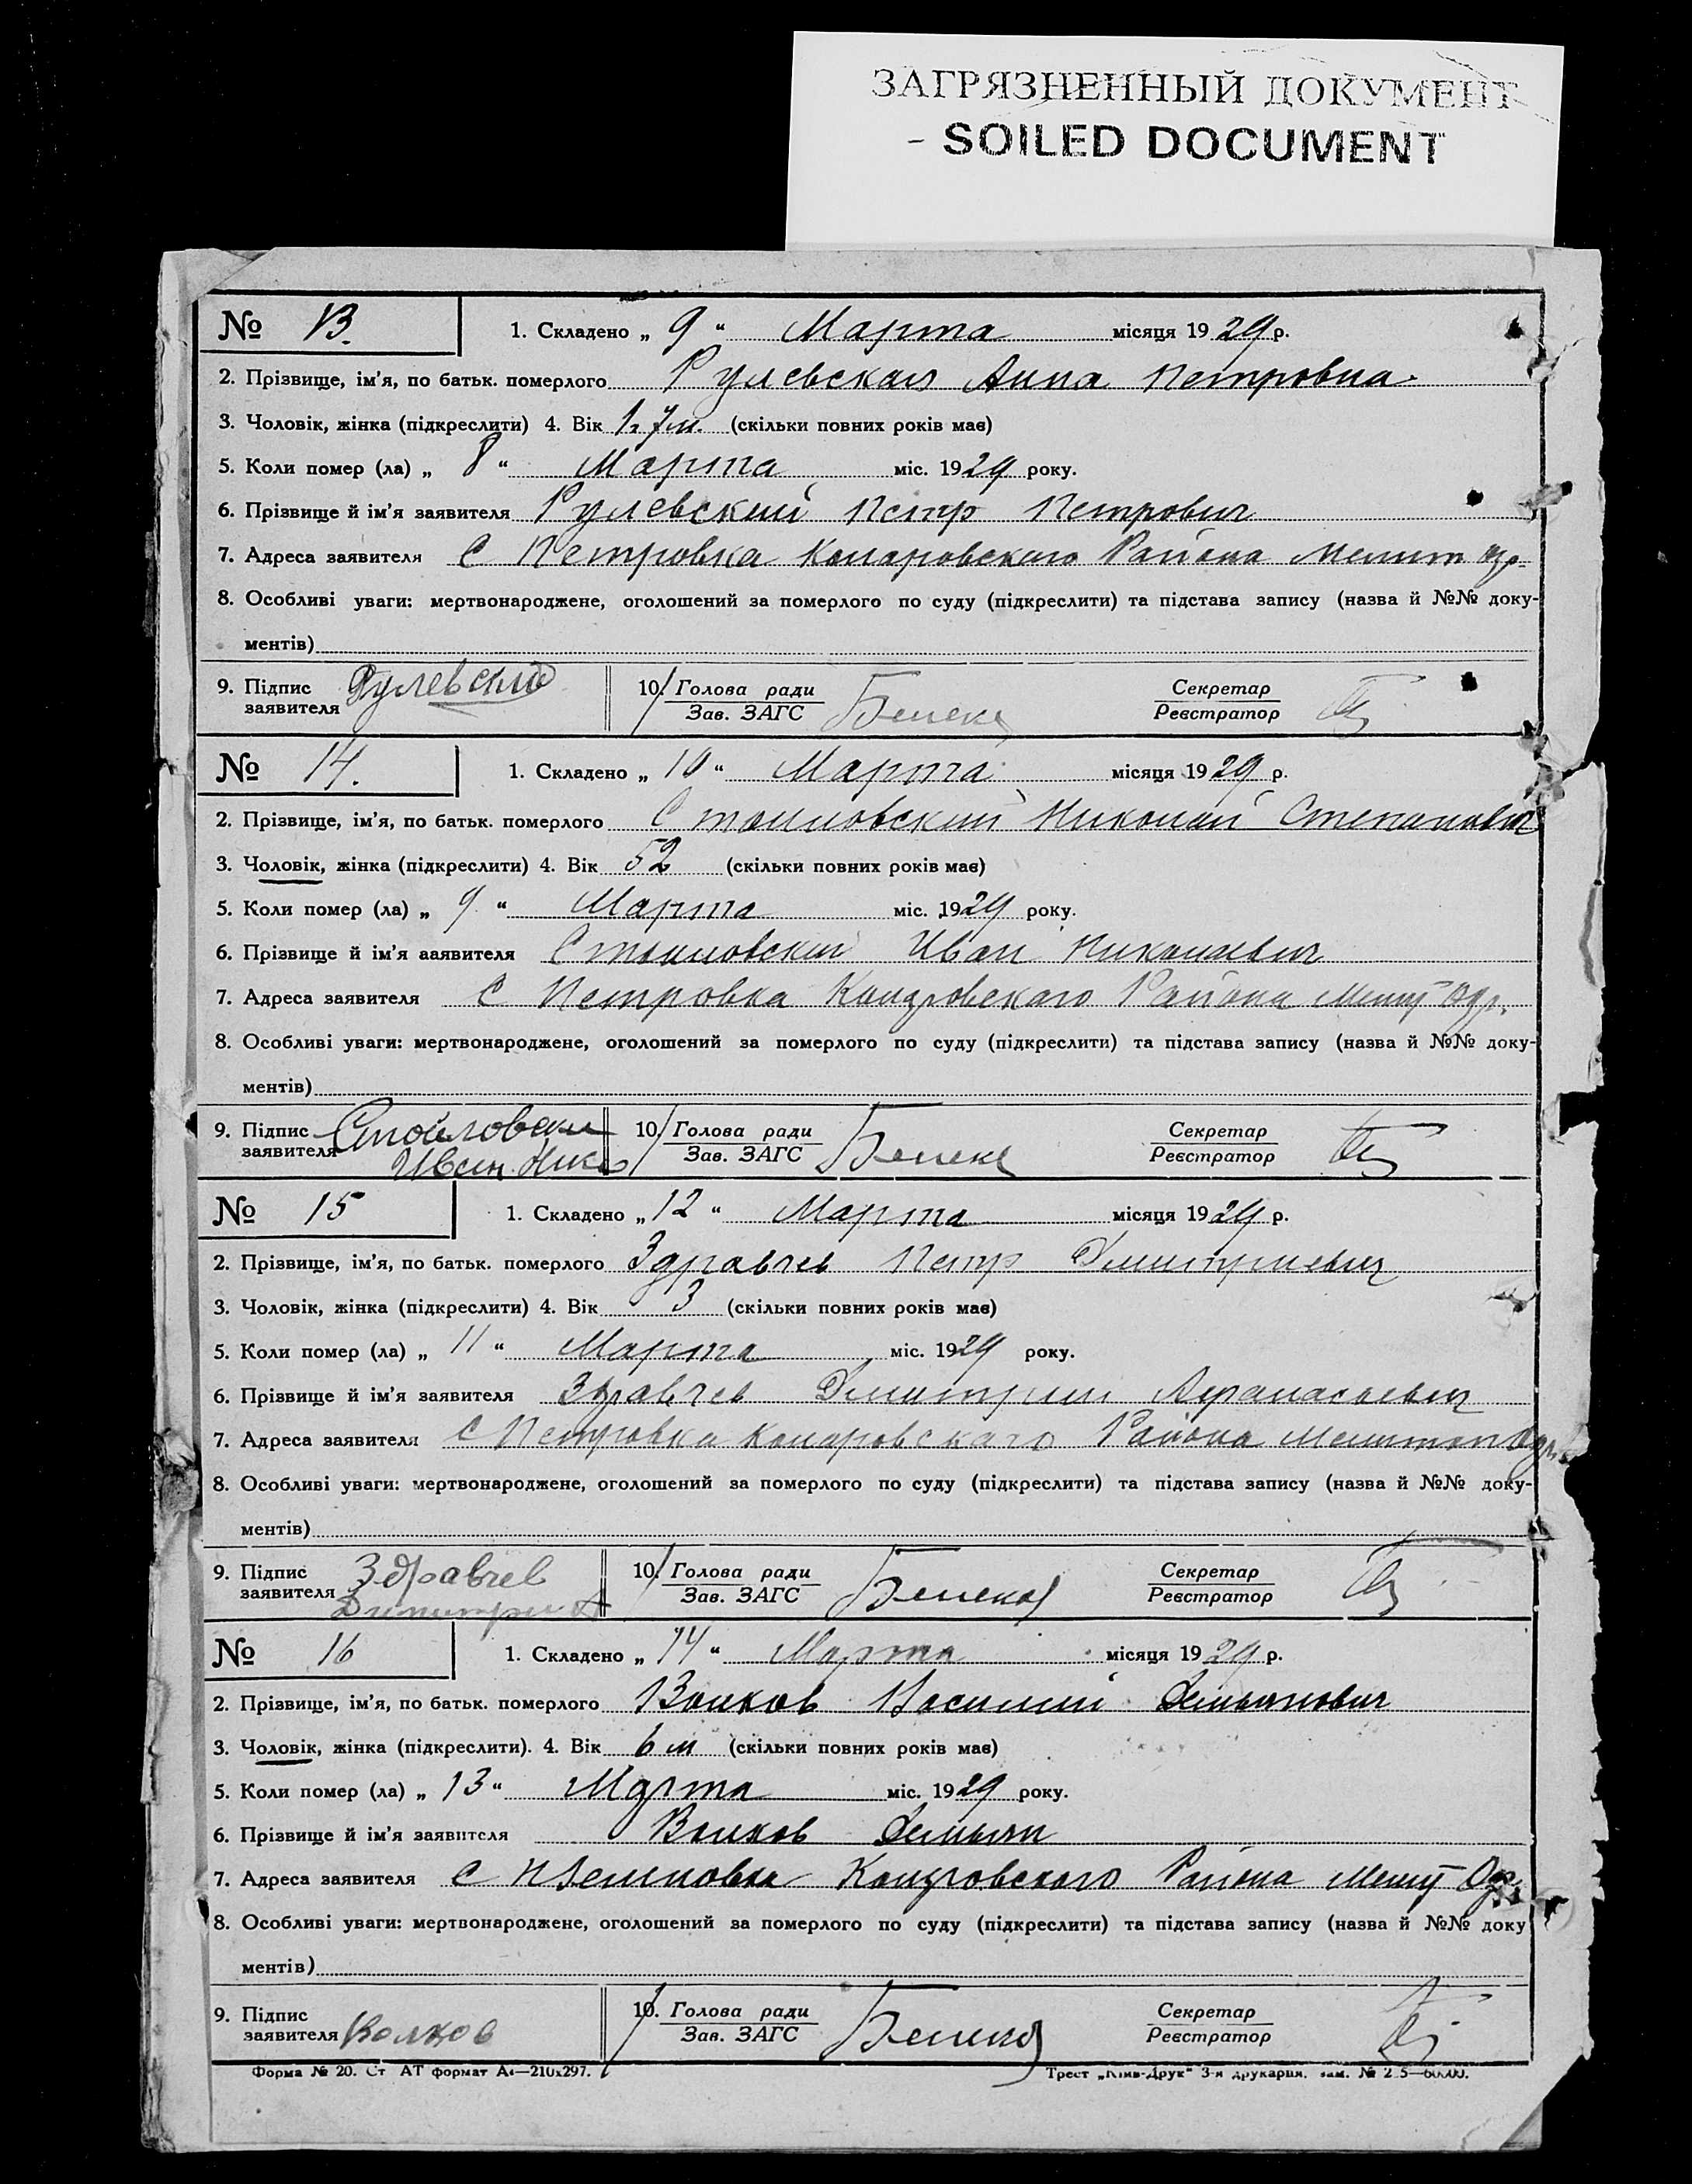 ЗАГРЯЗНЕННЫЙ ДОКУМЕНТ
- SOILED DOCUMENT
№ 13. 1. Складено „ 9 “ Марта місяця 1929 р.
2. Прізвище, ім'я, по батьк. померлого Рулевская Анна Петровна
3. Чоловік, жінка (підкреслити) 4. Вік 1. 7 м. (скільки повних років має)
5. Коли помер (ла) „ 8 “ Марта міс. 1929 року.
6. Прізвище й ім'я заявителя Рулевский Петр Петрович
7. Адреса заявителя С Петровка Коларовского Района Мелит
8. Особливі уваги: мертвонароджене, оголошений за померлого по суду (підкреслити) та підстава запису (назва й №№ доку-
ментів)
9. Підпис Рулевский 10. Голова ради Секретар
заявителя Зав. ЗАГС Реєстратор
№ 14. 1. Складено „ 10 “ Марта місяця 1929 р.
2. Прізвище, ім'я, по батьк. померлого Стоиловский Николай Степанович
3. Чоловік, жінка (підкреслити) 4. Вік 52 (скільки повних років має)
5. Коли помер (ла) „ 9 “ Марта міс. 1929 року.
6. Прізвище й ім'я заявителя Стоиловский Иван Николаевич
7. Адреса заявителя С Петровка Коларовского Района Мелит Окр.
8. Особливі уваги: мертвонароджене, оголошений за померлого по суду (підкреслити) та підстава запису (назва й №№ доку-
ментів)
9. Підпис Стойловски 10. Голова ради Секретар
заявителя Иван Ник Зав. ЗАГС Реєстратор
№ 15 1. Складено „ 12 “ Марта місяця 1929 р.
2. Прізвище, ім'я, по батьк. померлого Здравчев Петр Дмитриевич
3. Чоловік, жінка (підкреслити) 4. Вік 3 (скільки повних років має)
5. Коли помер (ла) „ 11 “ Марта міс. 1929 року.
6. Прізвище й ім'я заявителя Здравчев Дмитрии Афанасьевич
7. Адреса заявителя С Петровка Коларовского Района Мелитоп Окр.
8. Особливі уваги: мертвонароджене, оголошений за померлого по суду (підкреслити) та підстава запису (назва й №№ доку-
ментів)
9. Підпис Здравчев 10. Голова ради Секретар
заявителя Димитри А Зав. ЗАГС Реєстратор
№ 16 1. Складено „ 14 “ Марта місяця 1929 р.
2. Прізвище, ім'я, по батьк. померлого Волков Василий Демьянович
3. Чоловік, жінка (підкреслити). 4. Вік 6 м (скільки повних років має)
5. Коли помер (ла) „ 13 “ Марта міс. 1929 року.
6. Прізвище й ім'я заявителя Волков Демьян
7. Адреса заявителя С Коларовского Района Мелит Окр.
8. Особливі уваги: мертвонароджене, оголошений за померлого по суду (підкреслити) та підстава запису (назва й №№ доку
ментів)
9. Підпис 10. Голова ради Секретар
заявителя Волков Зав. ЗАГС Реєстратор
Форма № 20. Ст АТ формат А4—210х297. Трест „Київ-Друк“ 3-я друкарня,